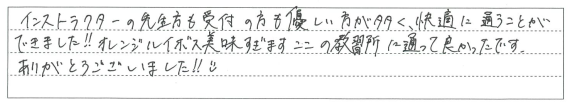 インストラクターの先生方も受付の方も優しい方が多く、快適に通うことが
できました!! オレンジルイボス美味すぎます ここの教習所に通って良かったです。
ありがとうございました!!